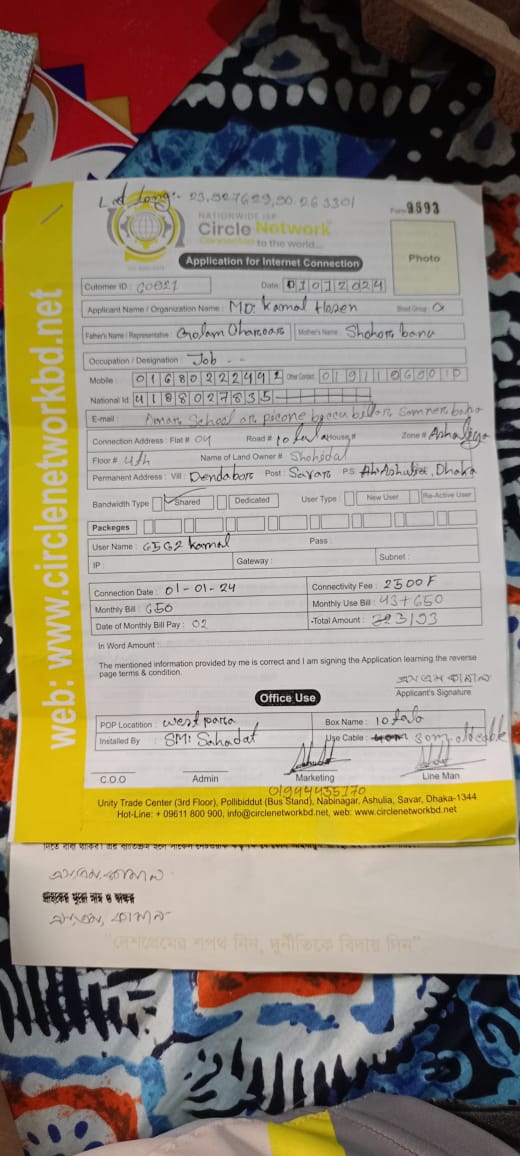 Lat Long:- 23.927629,90.263301
Form 9593
NATIONWIDE ISP
Circle Network
Connected to the world...
Photo
Application for Internet Connection
Cutomer ID : Date: 01012024
Applicant Name / Organization Name : MD: Kamal Hosen Blood Group :
Father's Name / Representative : Mother's Name : Shohor banu
Occupation / Designation : Job - -
Mobile : Other Contact :
National Id 4188027835
E-mail : Amar School
Connection Address : Flat # 04 Road # 10 tala House # Zone # Ashuliya
Floor # 4th Name of Land Owner # Shohidal
Permanent Address : Vill : Dendabor Post : Savar P.S. Ashulia, Dhaka
Bandwidth Type Shared Dedicated User Type : New User Re-Active User
Packeges
User Name : kamal Pass :
IP : Gateway : Subnet :
Connection Date : 01-01-24 Connectivity Fee : 2500
Monthly Bill : 650 Monthly Use Bill : 43+650
Date of Monthly Bill Pay : 02 Total Amount :
In Word Amount :
The mentioned information provided by me is correct and I am signing the Application learning the reverse
page terms & condition.
Applicant's Signature
Office Use
POP Locatition : west para Box Name : 10 tala
Installed By : SM: Sahadat Use Cable :
C.O.O Admin Marketing Line Man
01944435170
Unity Trade Center (3rd Floor), Pollibiddut (Bus Stand), Nabinagar, Ashulia, Savar, Dhaka-1344
Hot-Line: + 09611 800 900, info@circlenetworkbd.net, web: www.circlenetworkbd.net
web: www.circlenetworkbd.net
"দেশপ্রেমের শপথ নিন, দুর্নীতিকে বিদায় দিন"